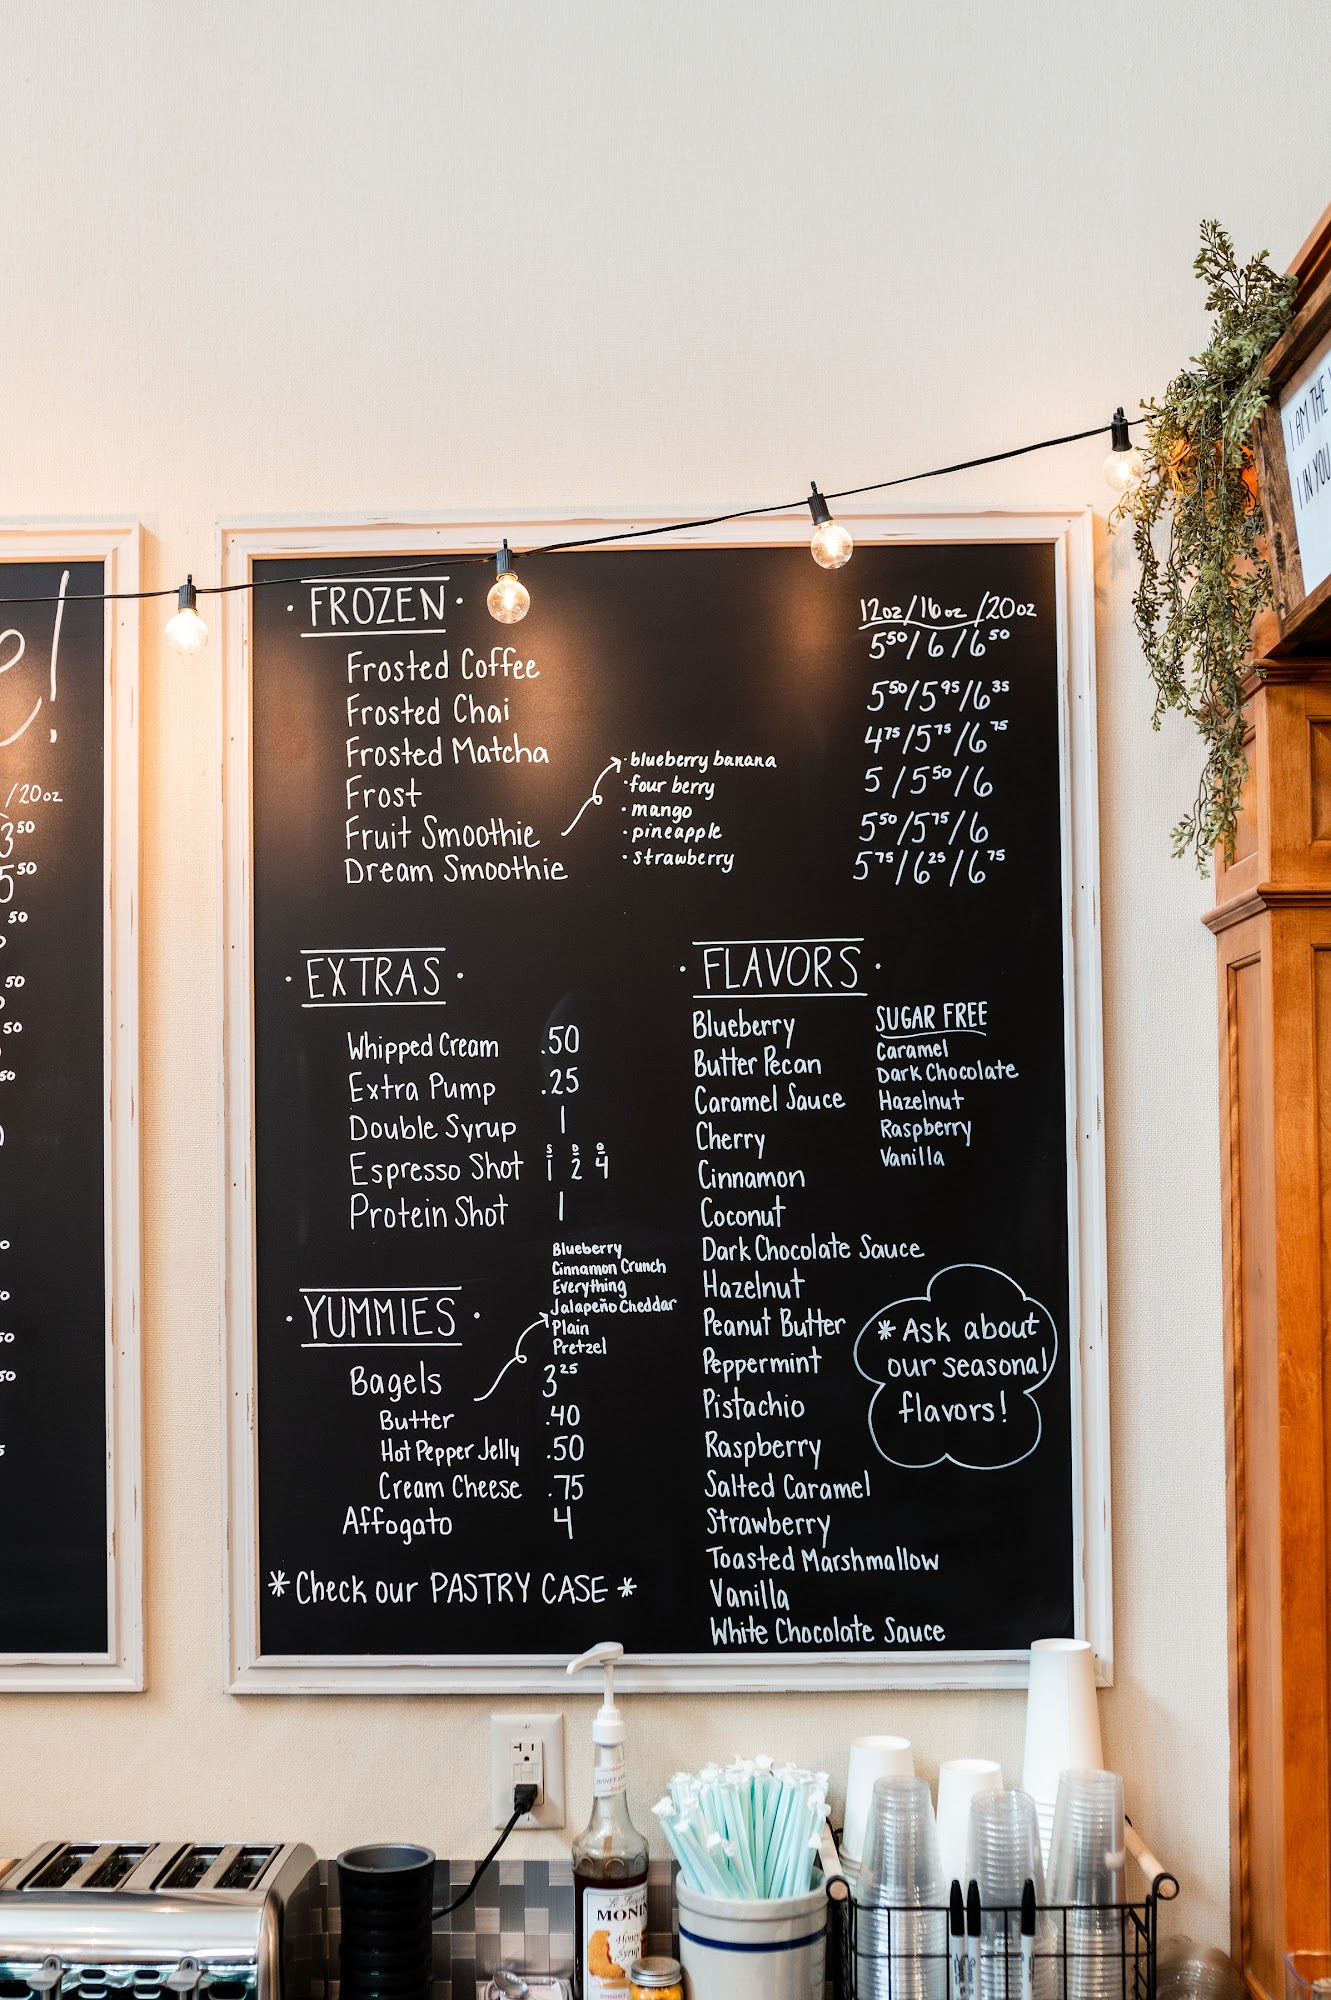 e!
/20oz
3⁵⁰
5⁵⁰
50
50
50
50
· FROZEN · 12oz/16oz/20oz
Frosted Coffee 5⁵⁰/6/6⁵⁰
Frosted Chai 5⁵⁰/5⁹⁵/6³⁵
Frosted Matcha 4⁷⁵/5⁷⁵/6⁷⁵
Frost 5/5⁵⁰/6
Fruit Smoothie 5⁵⁰/5⁷⁵/6
· blueberry banana
· four berry
· mango
· pineapple
· strawberry
Dream Smoothie 5⁷⁵/6²⁵/6⁷⁵
· EXTRAS ·
Whipped Cream .50
Extra Pump .25
Double Syrup 1
S D Q
Espresso Shot 1 2 4
Protein Shot 1
· YUMMIES ·
Blueberry
Cinnamon Crunch
Everything
Jalapeño Cheddar
Plain
Pretzel
Bagels 3²⁵
Butter .40
Hot Pepper Jelly .50
Cream Cheese .75
Affogato 4
*Check our PASTRY CASE*
· FLAVORS ·
Blueberry
Butter Pecan
Caramel Sauce
Cherry
Cinnamon
Coconut
Dark Chocolate Sauce
Hazelnut
Peanut Butter
Peppermint
Pistachio
Raspberry
Salted Caramel
Strawberry
Toasted Marshmallow
Vanilla
White Chocolate Sauce
SUGAR FREE
Caramel
Dark Chocolate
Hazelnut
Raspberry
Vanilla
* Ask about
our seasonal
flavors!
I AM THE
I IN YOU
MONIN
Honey
Syrup